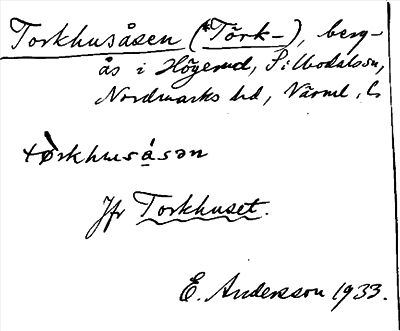 Torkhusåsen (*Törk-), berg-
ås i Högerud, Silbodals sn,
Nordmarks hd, Värml. l.
tørkhusåsən
Jfr Torkhuset.
E. Andersson 1933.